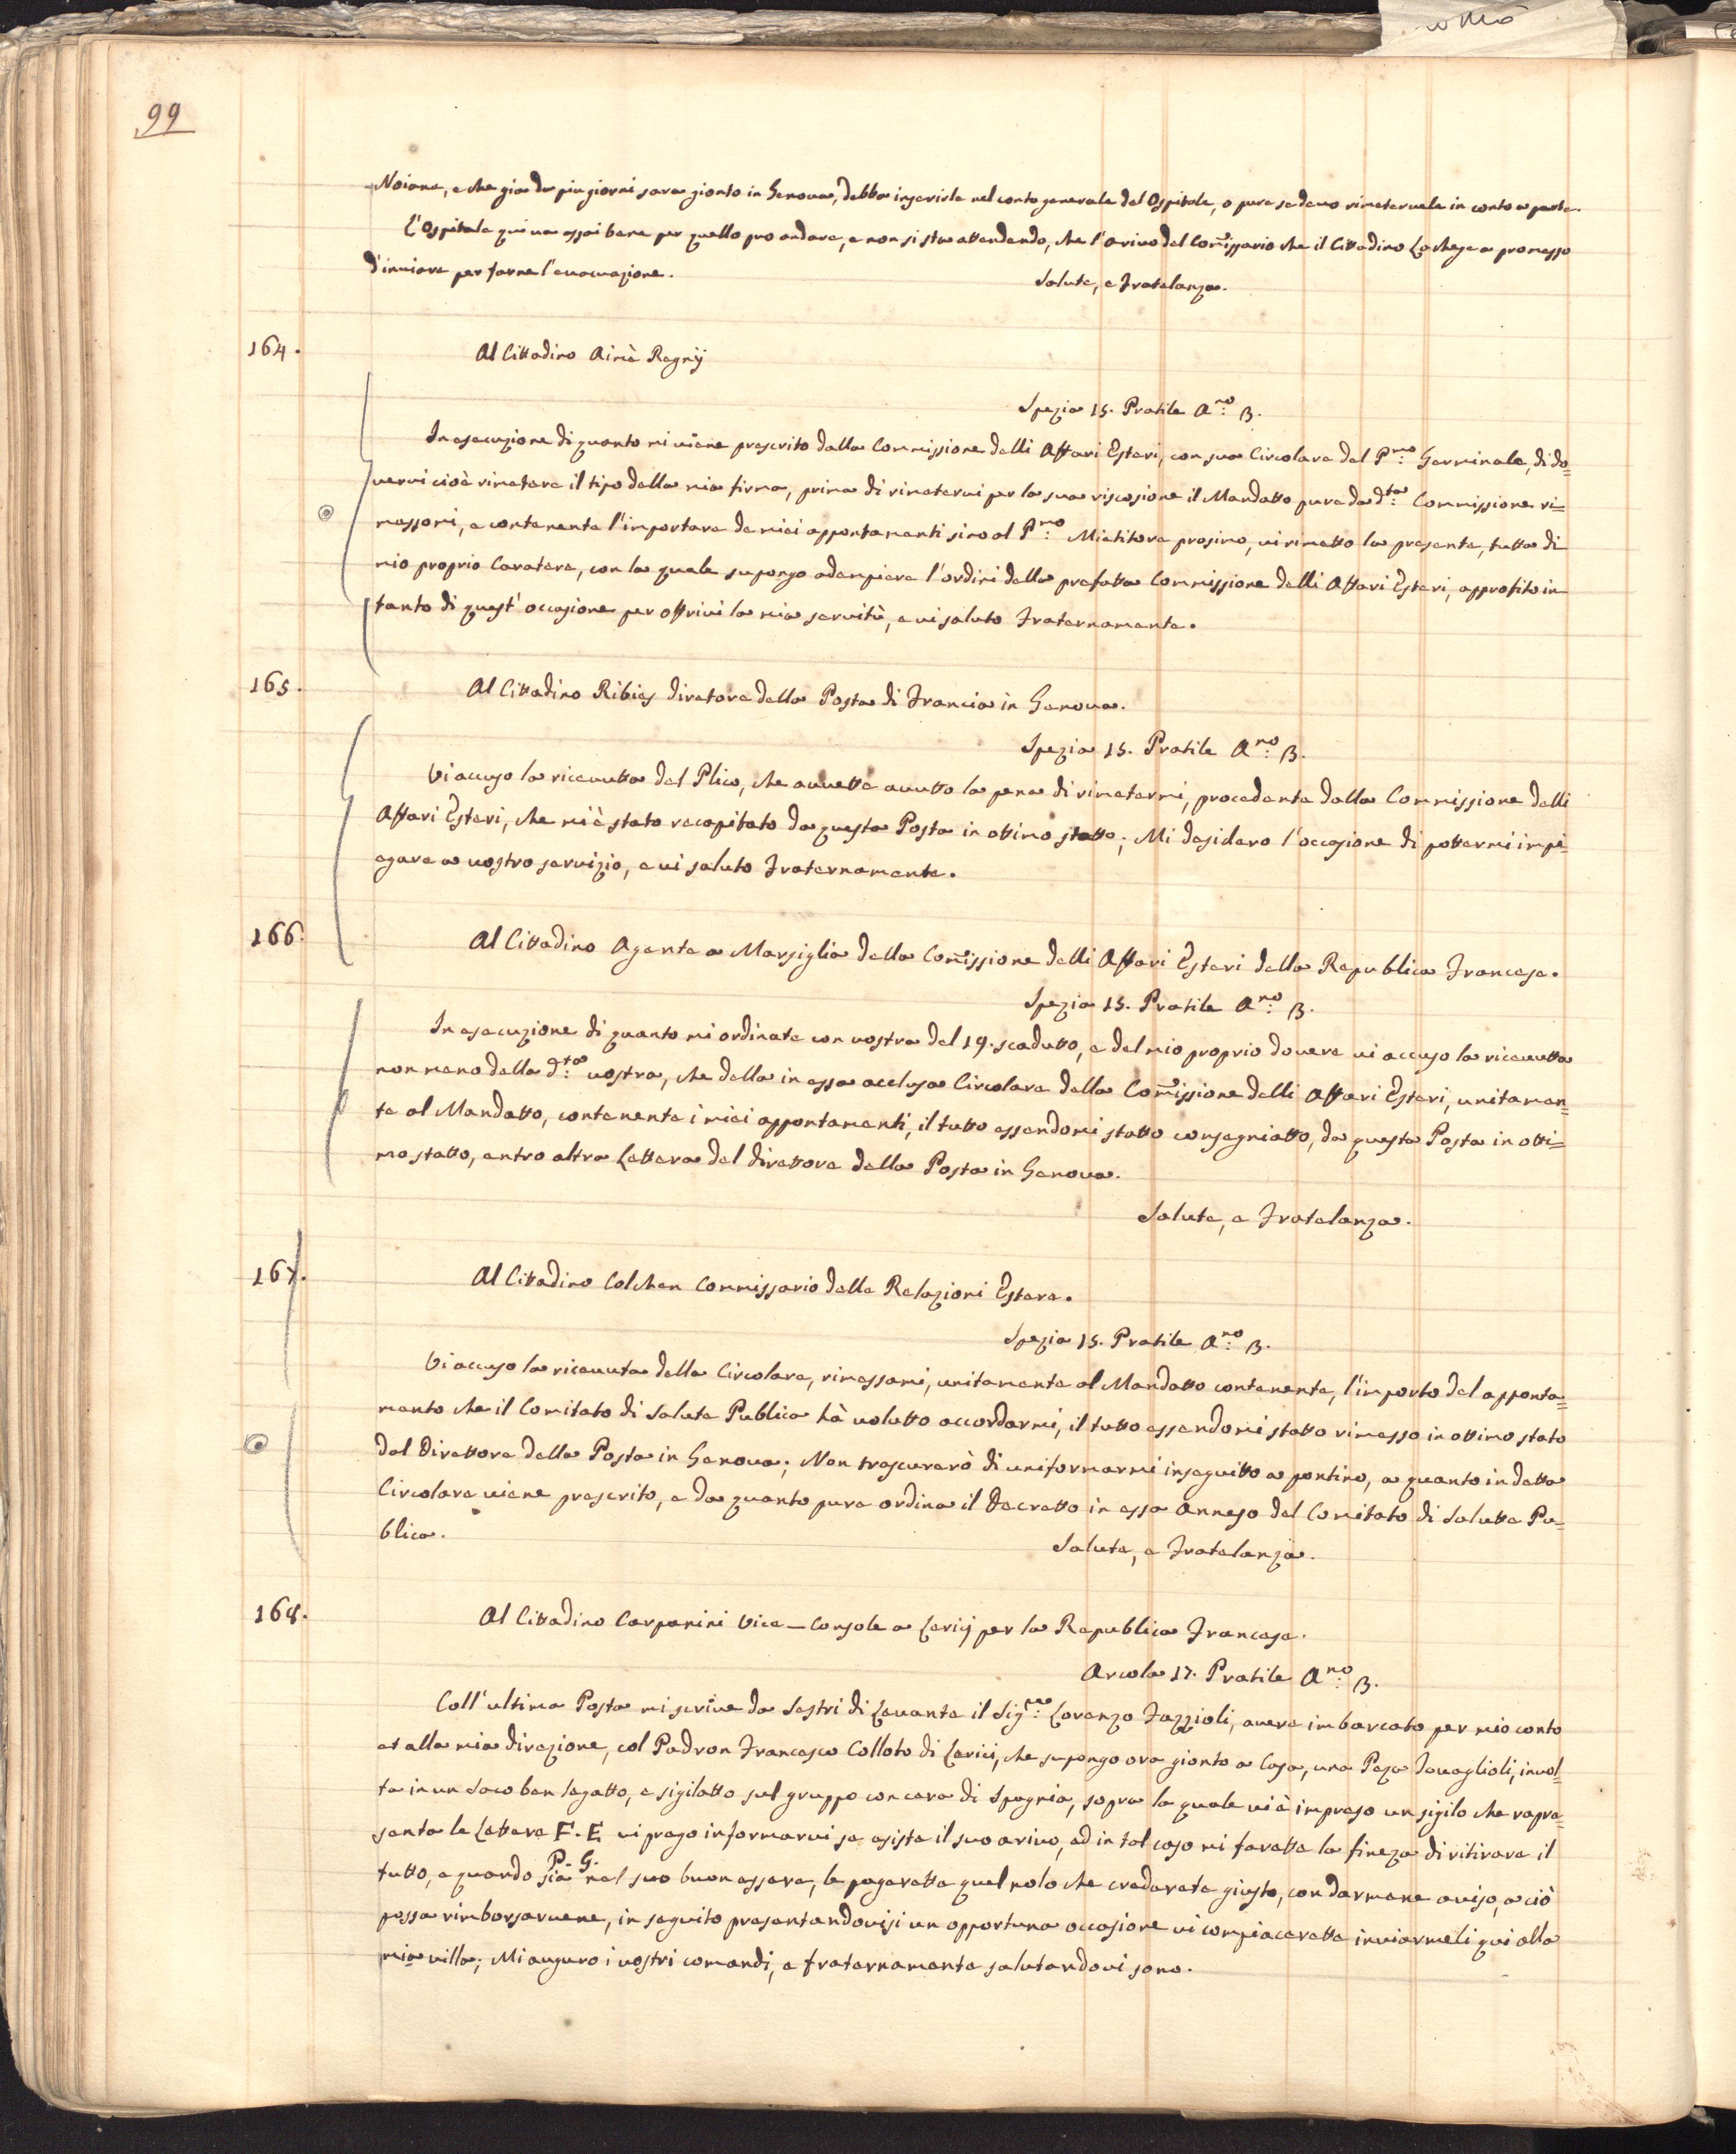 99
Noiane, e che già da piu giorni sara gionto in Genova, debba inserirle nel conto generale del Ospitale, o pure se devo rimetervele in conto a parte.
L'Ospitale qui va assai bene per quello pro andare, e non si sta attendendo, che l'arivo del Com̃issario che il Cittadino La chese a promesso
d'inviare per farne l'evacuazione.
Salute, e Fratelanza.
164.
Al Cittadino Aimè Regnij
Spezia 15. Pratile A.no 3.
In esecuzione di quanto mi viene prescrito dalla Commissione delli Affari Esteri, con sua Circolare del P.mo Germinale, di do=
vervi cioè rimetere il tipo della mia firma, prima di rimetervi per la sua riscosione il Mandatto pure da d.ta Commissione ri=
messomi, e contenente l'importare de miei appontamenti sino al P.mo Mietitore prosimo, vi rimetto la presente, tutta di
mio proprio Caratere, con la quale supongo adempiere l'ordini della prefatta Commissione delli Affari Esteri, approfito in
tanto di quest'occasione per offrivi la mia servitù, e vi saluto Fraternamente.
165.
Al Cittadino Ribies Diretore della Posta di Francia in Genova.
Spezia 15. Pratile A.no 3.
Vi accuso la ricevutta del Plico, che avvette avutto la pena di rimetermi, procedente dalla Commissione delli
Affari Esteri, che mi è stato recapitato da questa Posta in ottimo statto; Mi desidero l'occasione di pottermi impi=
egare a vostro servizio, e vi saluto Fraternamente.
166.
Al Cittadino Agente a Marsiglia della Com̃issione delli Affari Esteri della Republica Francese.
Spezia 15. Pratile A.no 3.
In esecuzione di quanto mi ordinate con vostra del 19. scadutto, e del mio proprio dovere vi accuso la ricevutta
non meno della d.ta vostra, che della in essa acclusa Circolare della Com̃issione delli Affari Esteri, unitamen=
te al Mandatto, contenente i miei appontamenti, il tutto essendomi statto consegniatto, da questa Posta in otti=
mo statto, entro altra Lettera del Direttore della Posta in Genova.
Salute, e Fratelanza.
167.
Al Cittadino Colchen Commissario delle Relazioni Estere.
Spezia 15. Pratile A.no 3.
Vi accuso la ricevuta della Circolare, rimessami, unitamente al Mandatto contenente, l'importo del apponta=
mento che il Comitato di Salute Publica hà volutto accordarmi, il tutto essendomi statto rimesso in ottimo stato
dal Direttore della Posta in Genova; Non trascurerò di uniformarmi inseguitto a pontino, a quanto in detta
Circolare viene prescrito, e da quanto pure ordina il Decretto in essa Anneso del Comitato di Salutte Pu=
blica.
Salute, e Fratelanza.
168.
Al Cittadino Carpanini Vice-Console a Lerij per la Republica Francese.
Arcola 17. Pratile A.no 3.
Coll'ultima Posta mi scrive da Sestri di Levante il Sig.re Lorenzo Fazzioli, avere imbarcato per mio conto
et alla mia direzione, col Padron Francesco Colloto di Lerici, che supongo ora gionto a Casa, una Peza Tovaglioli, invol=
ta in un Saco ben legatto, e sigilatto sul gruppo con cera di Spagnia, sopra la quale vi è impreso un sigilo che rapre=
senta le Lettere F. E vi prego informarvi se esista il suo arivo, ed in tal caso mi faretta la fineza di ritirare il
P. G.
tutto, e quando sia nel suo buon essere, le pagaretta quel nolo che crederete giusto, con darmene aviso, a ciò
possa rimborsarvene, in seguito presentandovisi un opportuna occasione vi compiaceretta inviarmeli qui alla
mia villa; Mi auguro i vostri comandi, e fraternamente salutandovi sono.